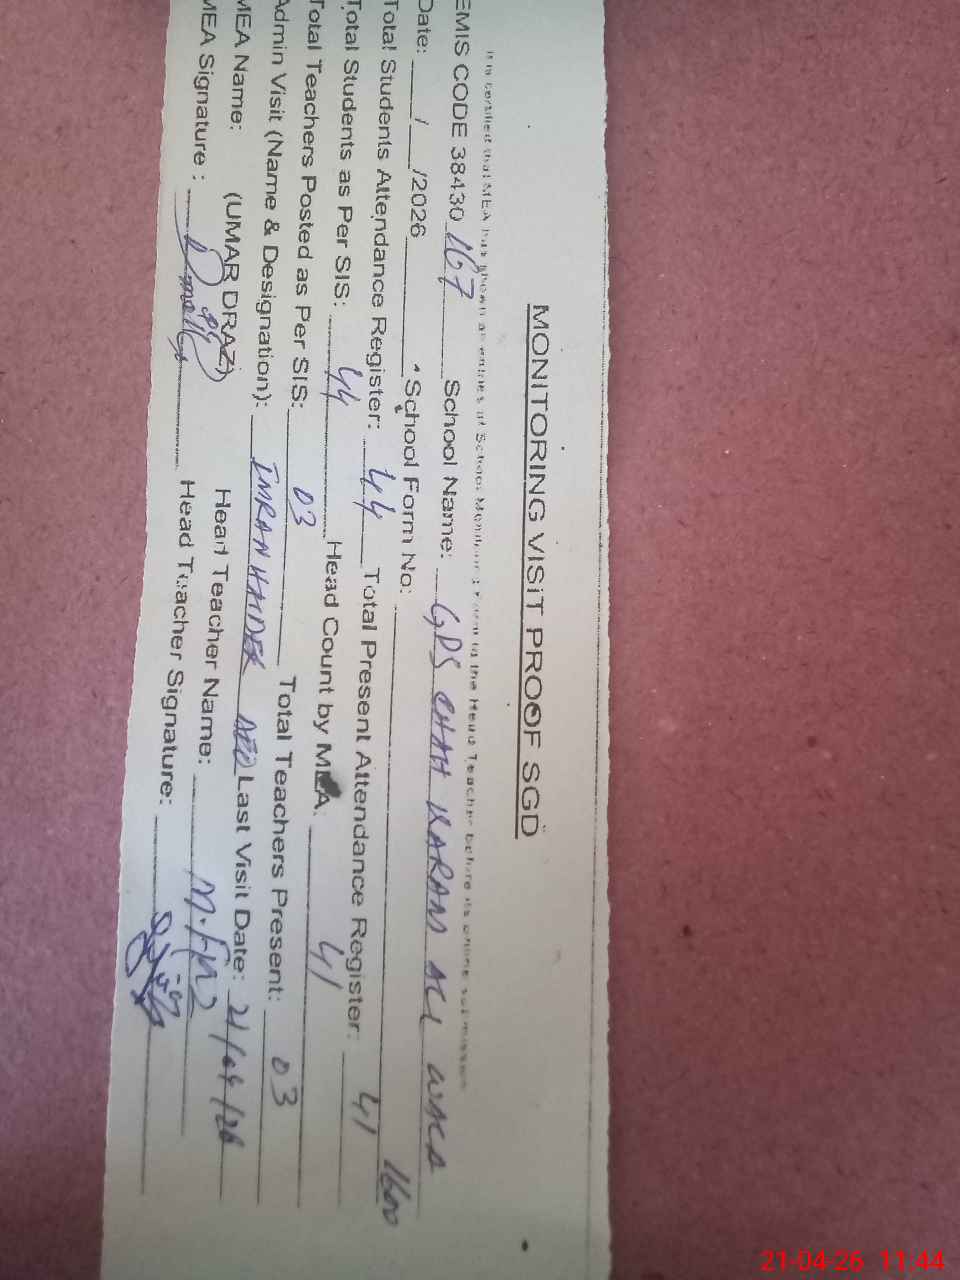 MONITORING VISIT PROOF SGD
It is certified that MEA has shown all entries at School Monitoring Form to the Head Teacher before its online submission
EMIS CODE 38430 167 School Name: GPS CHAH KARAM ALI WALA
Date: / /2026 School Form No: 1600
Total Students Attendance Register: 44 Total Present Attendance Register: 41
Total Students as Per SIS: 44 Head Count by MEA: 41
Total Teachers Posted as Per SIS: 03 Total Teachers Present: 03
Admin Visit (Name & Designation): IMRAN HAIDER AEO Last Visit Date: 21/04/26
MEA Name: (UMAR DRAZ) Head Teacher Name:
MEA Signature : Head Teacher Signature:
21-04-26 11:44